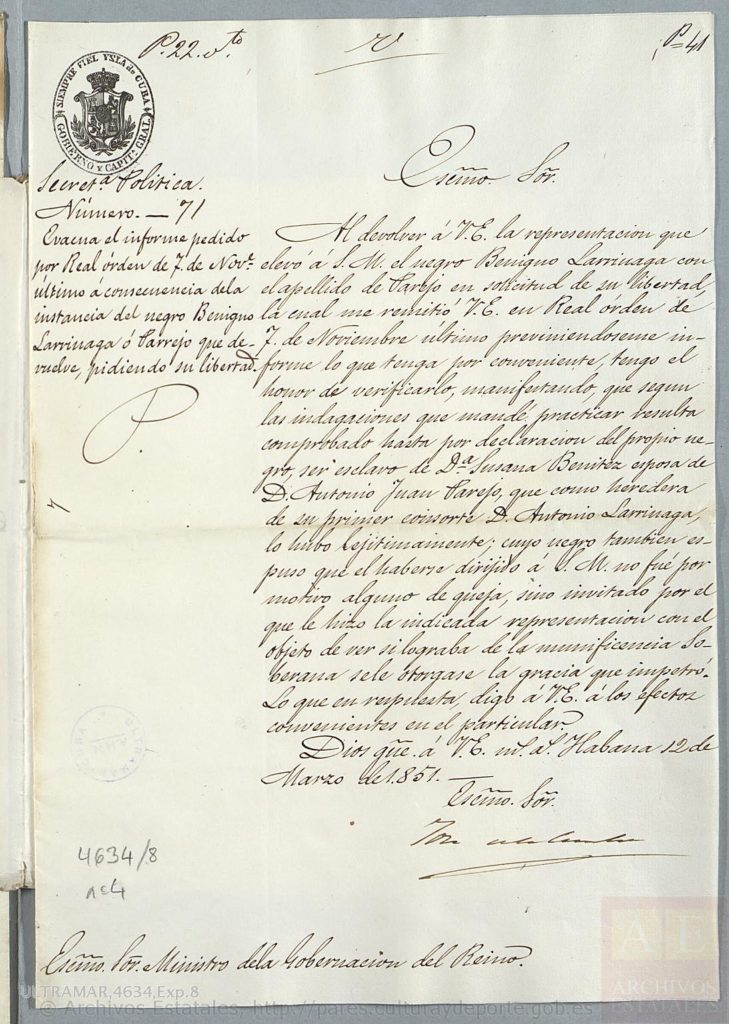 P. 22. v.to
P= 41
SIEMPRE FIEL YSLA de CUBA
GOBIERNO Y CAPIT.ª GRAL
Secret.ª Politica.
Número. — 71
Evacua el informe pedido
por Real órden de 7. de Nov.e
último á consecuencia dela
instancia del negro Benigno
Larrinaga ó Parrejo que de-
vuelve, pidiendo su libertad.
Escmo. Sor.
Al devolver á V.E. la representacion que
elevó á S. M. el negro Benigno Larrinaga con
el apellido de Parejo en solicitud de su libertad,
la cual me remitió V.E. en Real órden de
7. de Noviembre último previniendoseme in-
forme lo que tenga por conveniente, tengo el
honor de verificarlo, manifestando, que segun
las indagaciones que mandé practicar resulta
comprobado hasta por declaracion del propio ne-
gro, ser esclavo de D.ª Susana Benitez esposa de
D. Antonio Juan Parejo, que como heredera
de su primer consorte D. Antonio Larrinaga,
lo hubo lejitimamente; cuyo negro tambien es-
puso que el haberse dirijido á S. M. no fué por
motivo alguno de queja, sino invitado por el
que le hizo la indicada representacion con el
objeto de ver si lograba de la munificencia So-
berana sele otorgase la gracia que impetró.
Lo que en respuesta, digo á V.E. á los efectos
convenientes en el particular.
Dios gûe. á V.E. m.s a.s Habana 12 de
Marzo de 1.851. —
Escmo. Sor.
4634/8
nº4
Escmo. Sor. Ministro dela Gobernacion del Reino.
ULTRAMAR,4634,Exp.8
© Archivos Estatales, http://pares.culturaydeporte.gob.es
AE
ARCHIVOS
ESTATALES